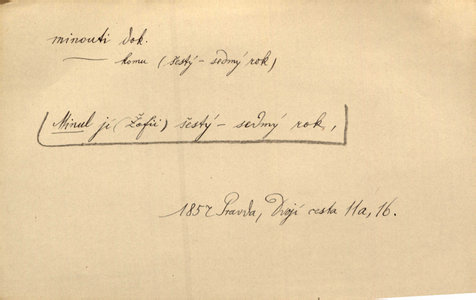 minouti dok.
komu (šestý – sedmý rok)
Minul jí (Žofii) šestý – sedmý rok,
1857 Pravda, Dvojí cesta 11a, 16.